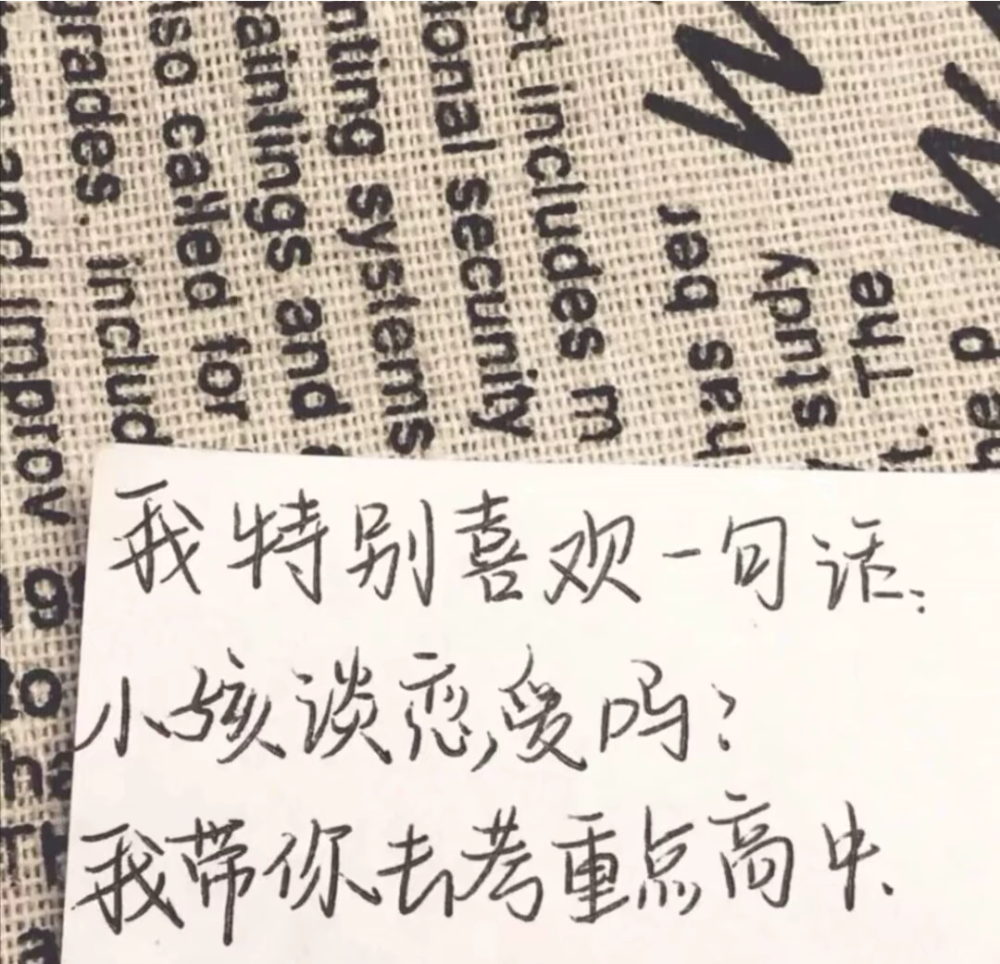 我特别喜欢一句话:
小孩谈恋爱吗?
我带你去考重点高中.
rades. includ
so called for
aintings and
nting systems
ional security
st includes m
has ber
study
The
and improv
to